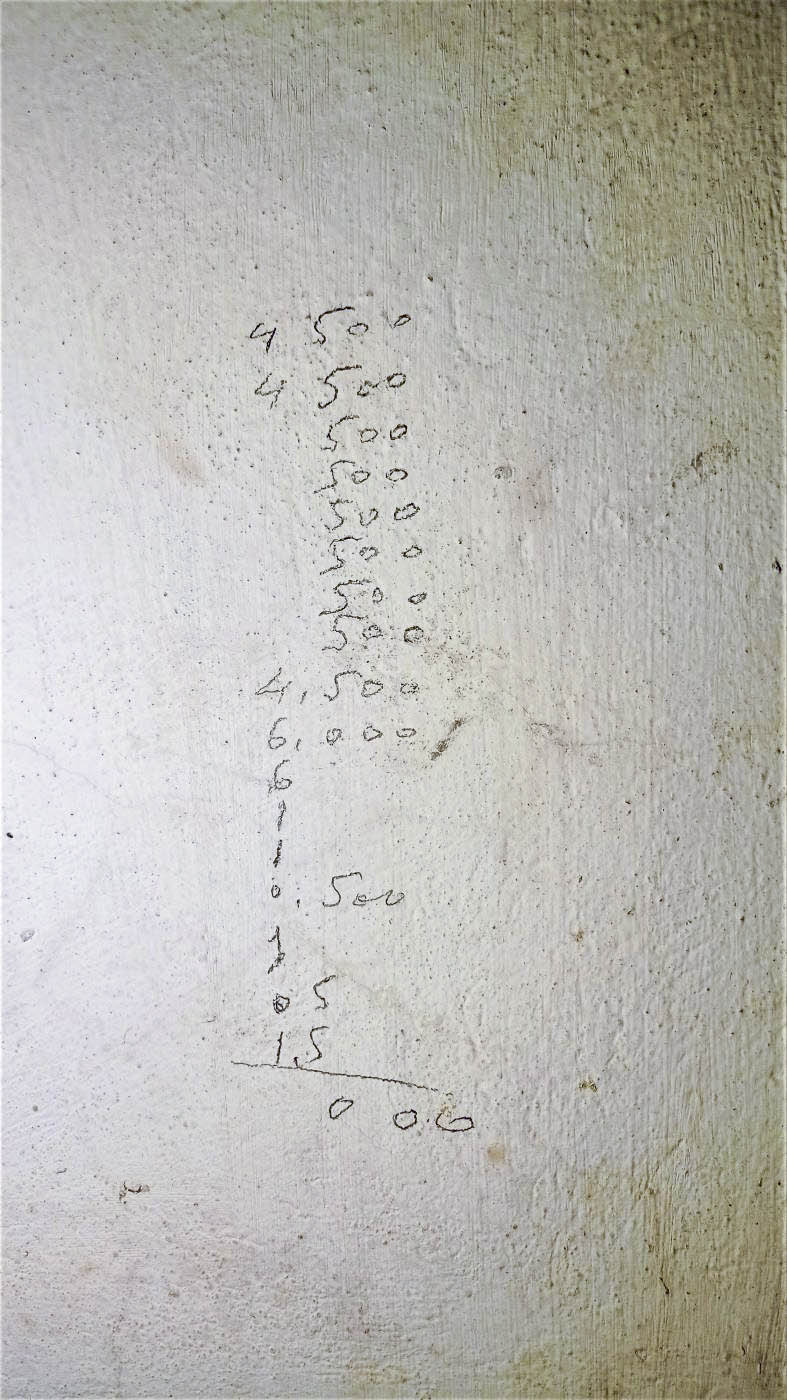 4 500
4 500
500
500
500
500
500
500
4,500
6,000
6
0. 500
0 5
1.5
0 00